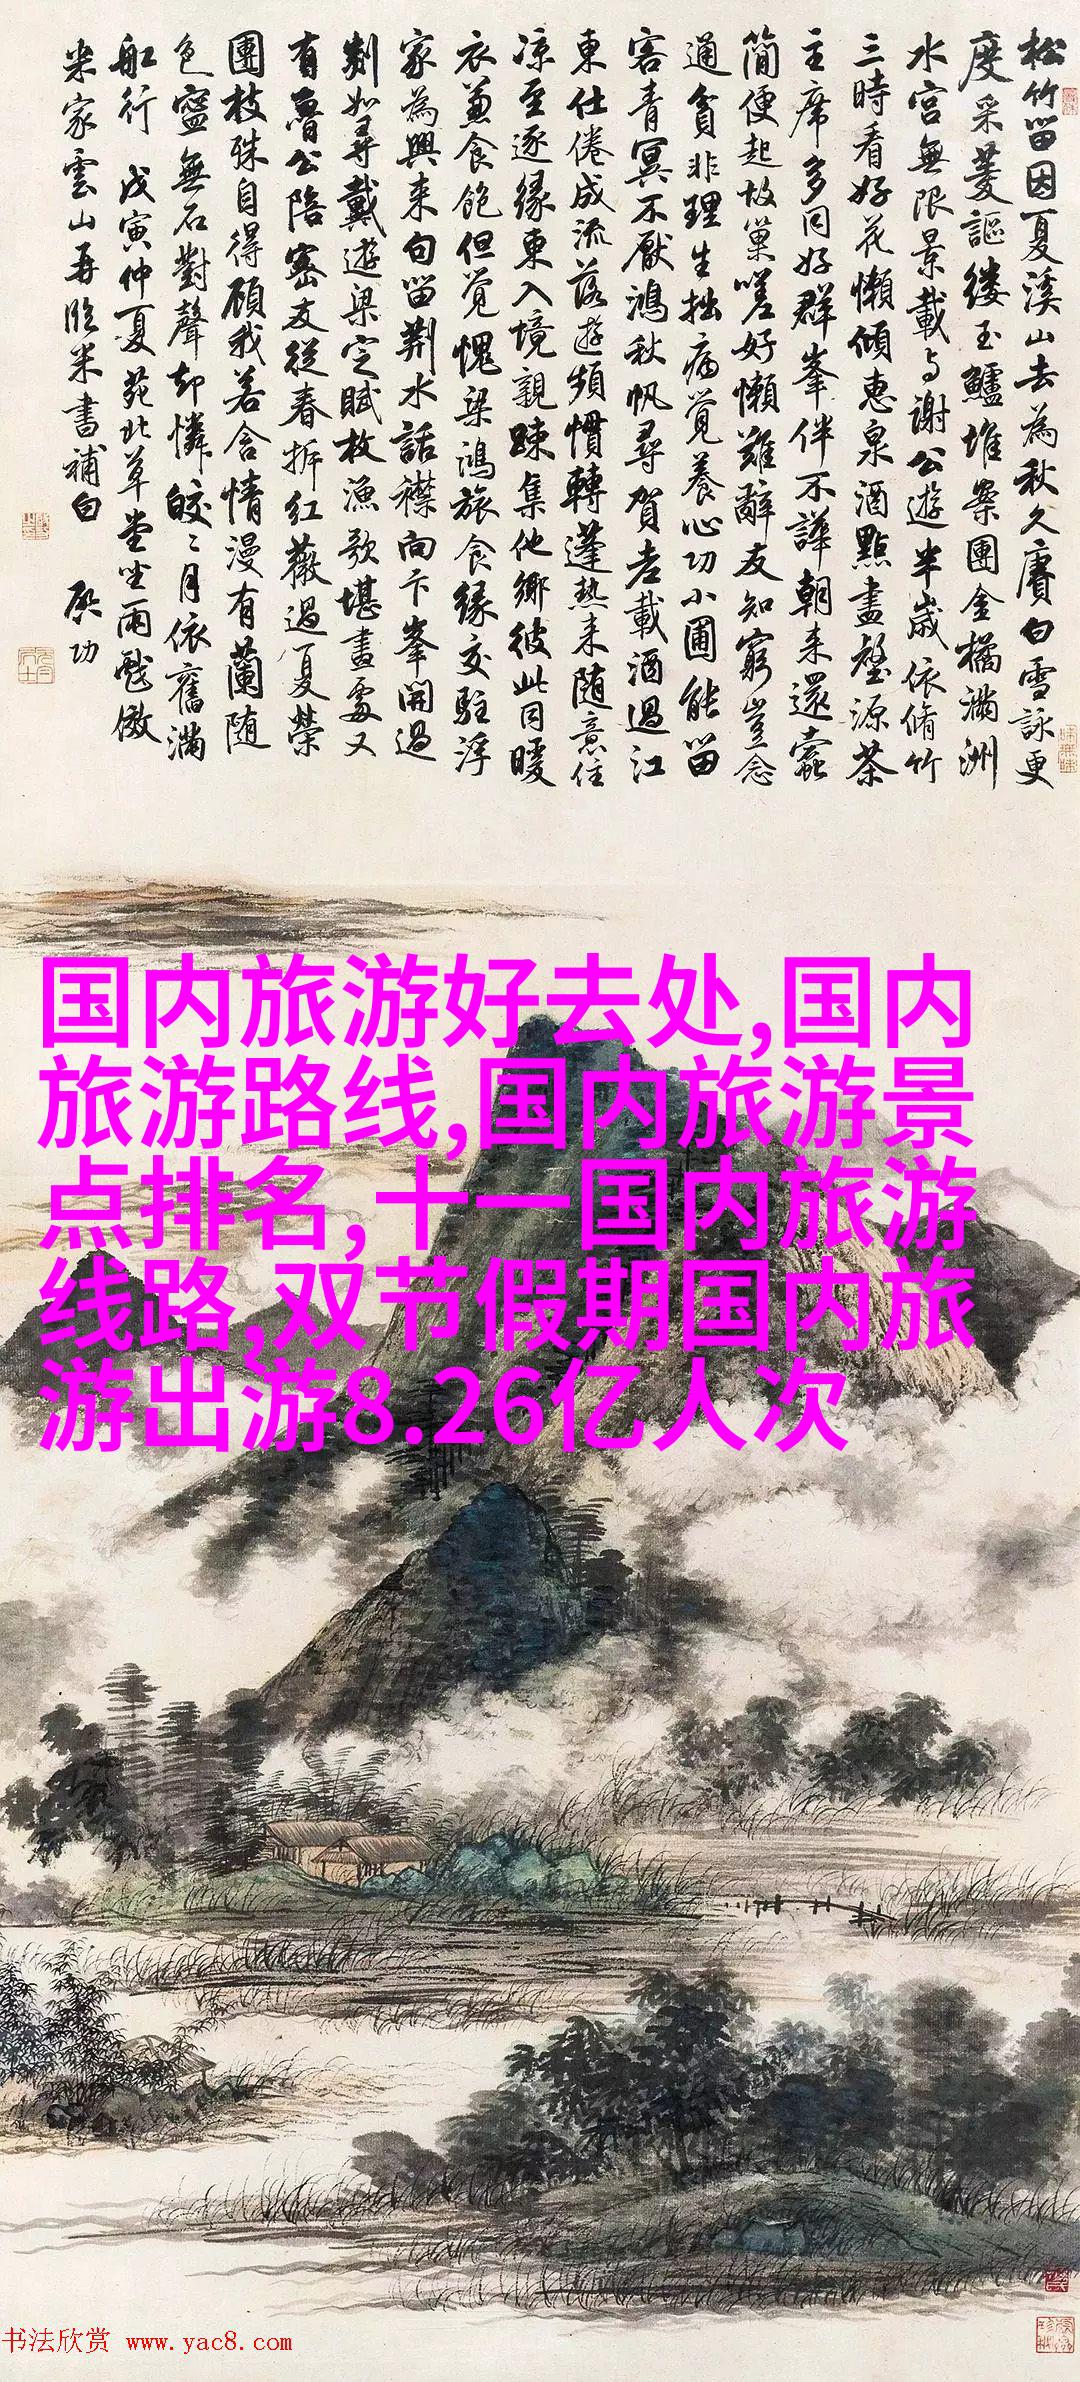 松竹留因夏溪山去為秋久賡白雪詠更
度采菱謳縷玉鱸堆案團金橘滿洲
水宮無限景載与謝公遊半歲依脩竹
三時看好花懶傾惠泉酒點盡壑源茶
主席多同好群峯伴不譁朝来還蠹
簡便起故巢嗟好懶難辭友知窮豈念
通貧非理生拙病覺養心功小圃能留
客青冥不厭鴻秋帆尋賀老載酒過江
東仕倦成流落遊頻慣轉蓬熱来随意住
凉至逐緣東入境親踈集他鄉彼此同暖
衣兼食飽但覺愧梁鴻旅食緣交駐浮
家為興来句留荆水話襟向卞峯開過
剡如尋戴遊梁定賦枚漁歌堪畫處又
有魯公陪密友從春拆紅薇過夏榮
團枝殊自得顧我若含情漫有蘭随
色寧無石對聲却憐皎〻月依舊滿
舡行 戊寅仲夏苑北草堂坐雨戲倣
米家雲山再臨米書補白 啓功
国内旅游好去处,国内
旅游路线,国内旅游景
点排名,十一国内旅游
线路,双节假期国内旅
游出游8.26亿人次
书法欣赏 www.yac8.com